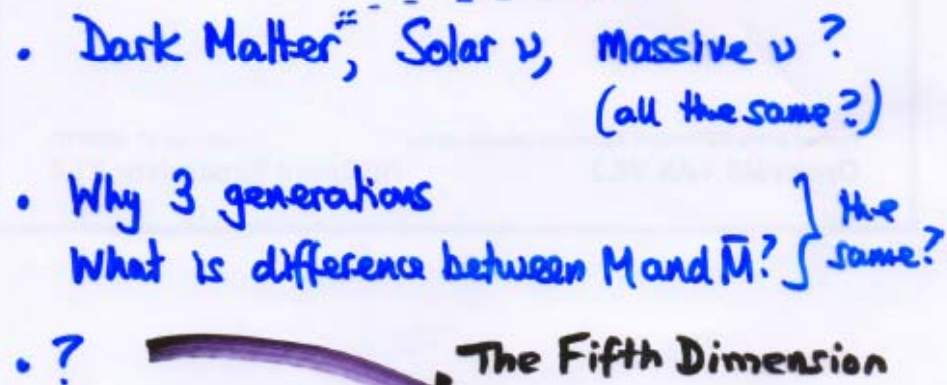 • Dark Matter, Solar ν, massive ν ?
(all the same?)
• Why 3 generations
What is difference between M and M̄? } the same?
• ?
The Fifth Dimension